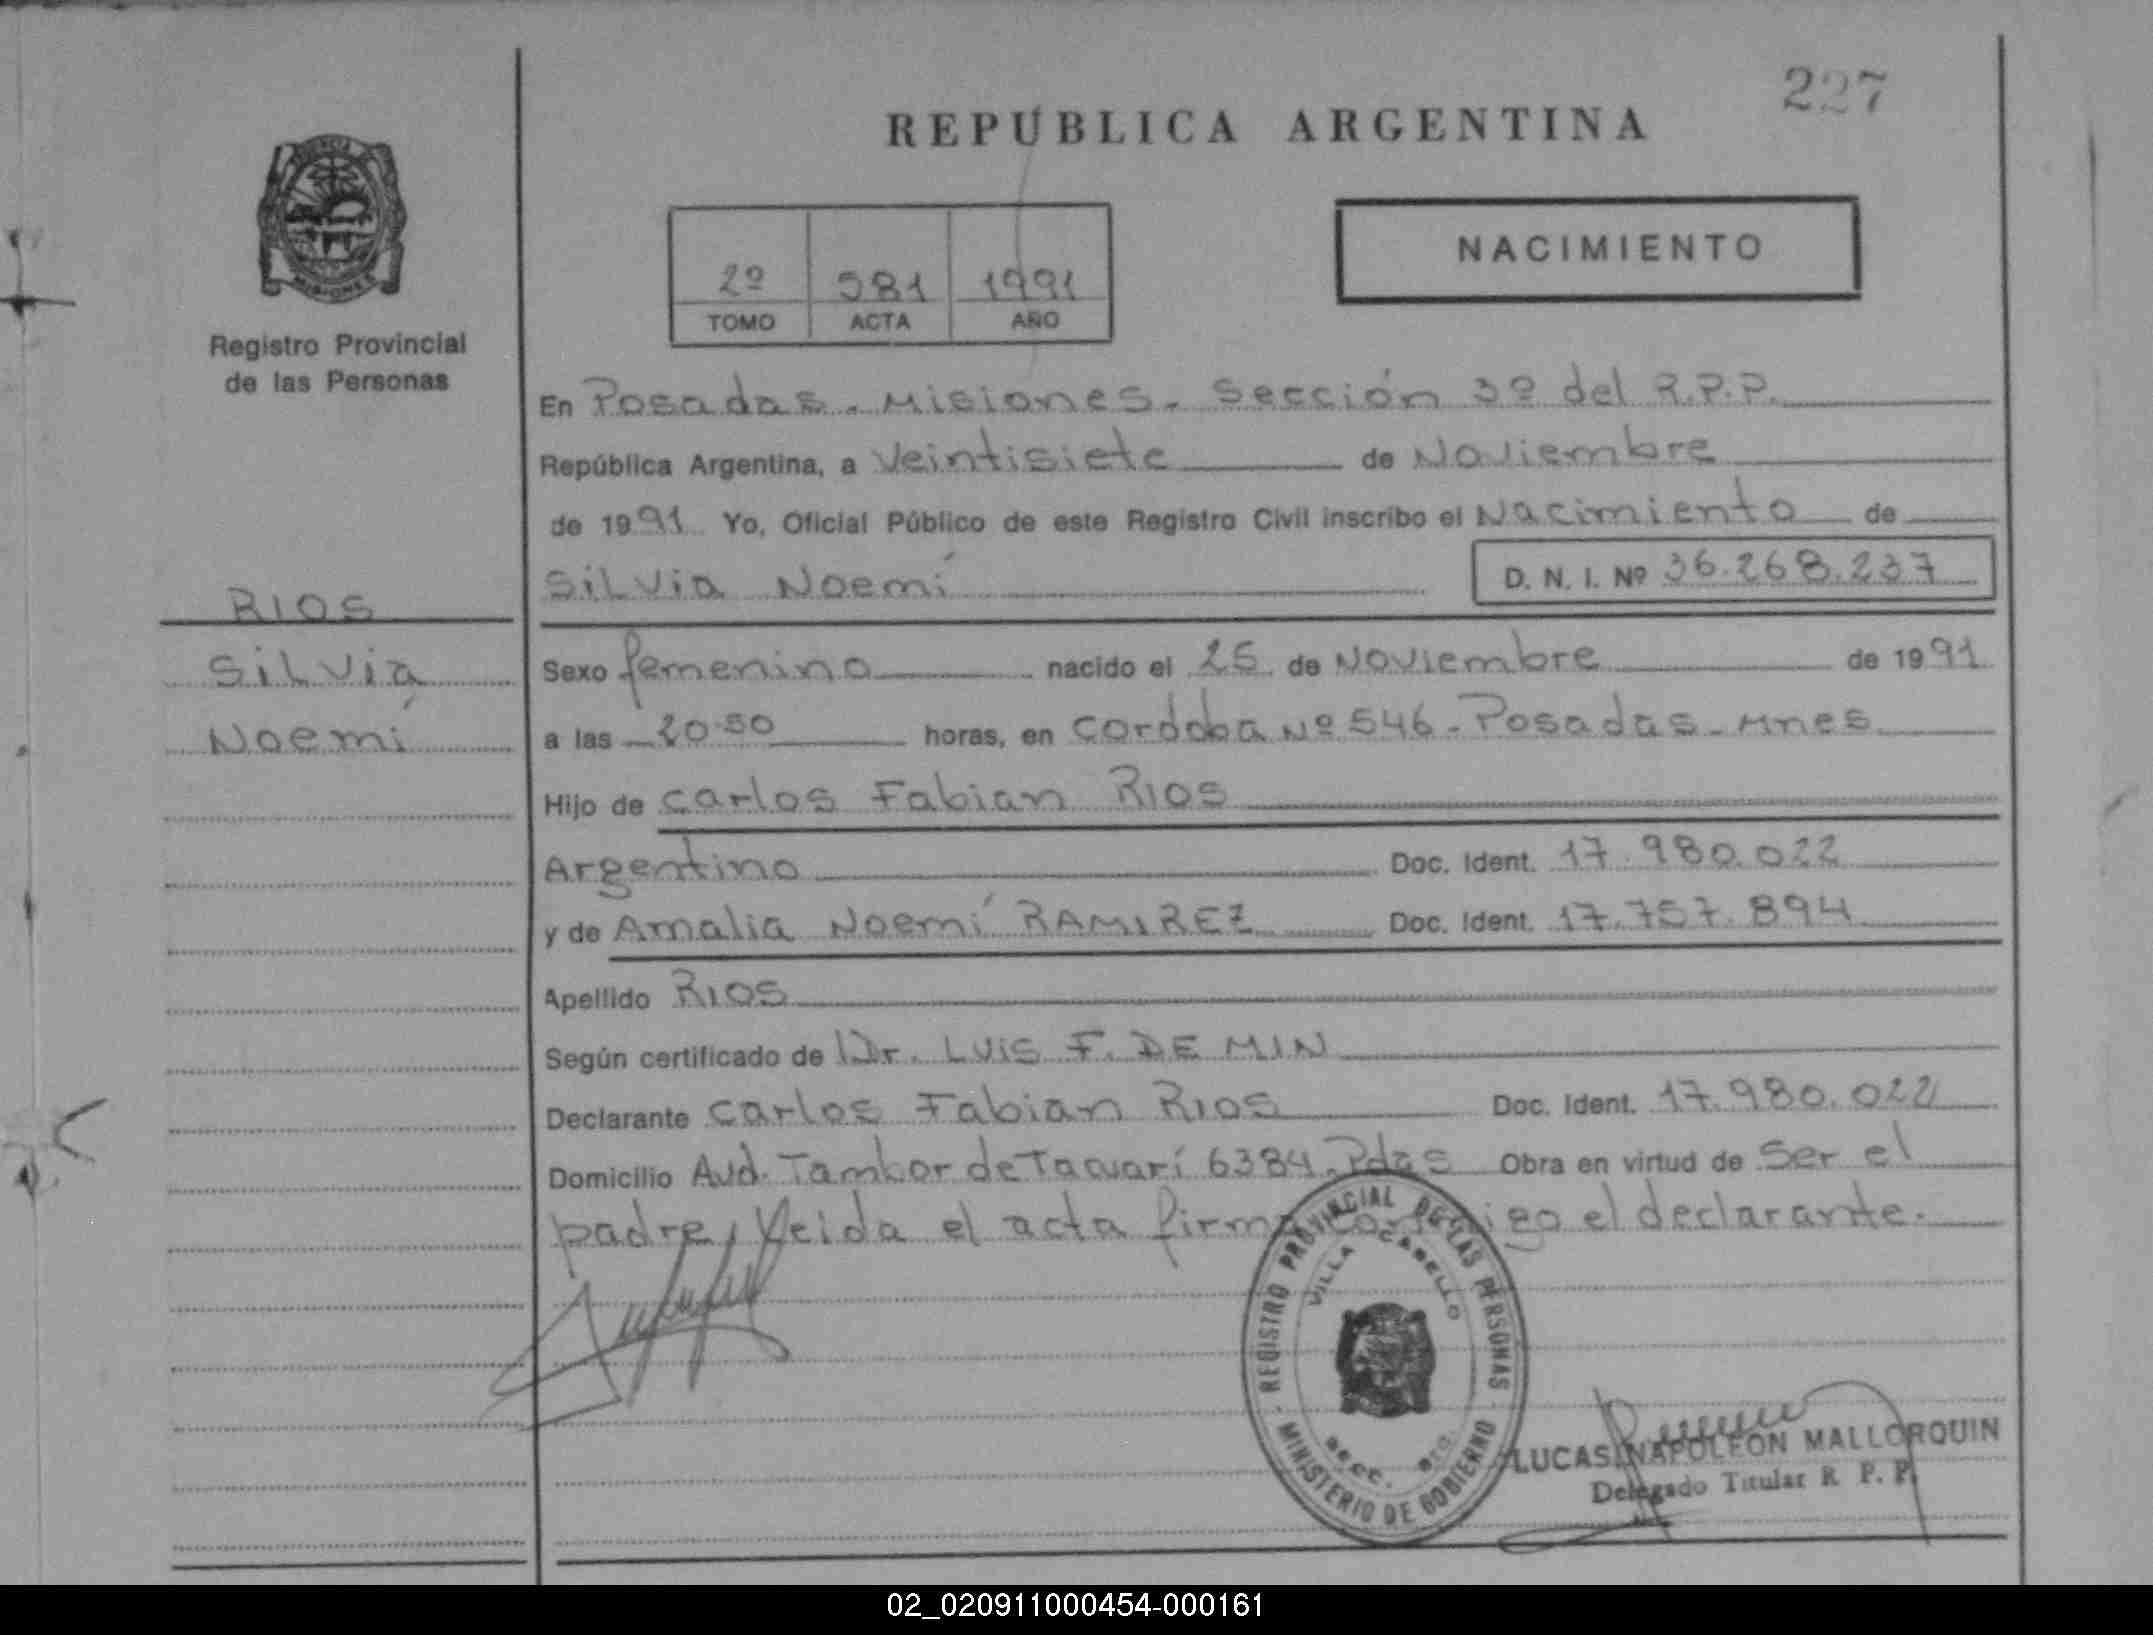 227
REPÚBLICA ARGENTINA
NACIMIENTO
2º 581 1991
TOMO ACTA AÑO
MISIONES
Registro Provincial
de las Personas
En Posadas - Misiones - Sección 3º del R.P.P.
República Argentina, a Veintisiete de Noviembre
de 1991 Yo, Oficial Público de este Registro Civil inscribo el Nacimiento de
Silvia Noemí D. N. I. Nº 36.268.237
RIOS
Silvia
Noemí
Sexo femenino nacido el 25 de Noviembre de 1991
a las 20:50 horas, en Cordoba Nº 546 - Posadas - Mnes
Hijo de Carlos Fabian Rios
Argentino Doc. Ident. 17.980.022
y de Amalia Noemí RAMIREZ Doc. Ident. 17.757.894
Apellido RIOS
Según certificado de Dr. LUIS F. DE MIN
Declarante Carlos Fabian Rios Doc. Ident. 17.980.022
Domicilio Avd. Tambor de Tacuarí 6384. Pdas Obra en virtud de Ser el
padre, leida el acta firma conmigo el declarante.
REGISTRO PROVINCIAL DE LAS PERSONAS
VILLA CABELLO
MINISTERIO DE GOBIERNO
LUCAS NAPOLEON MALLORQUIN
Delegado Titular R. P. P.
02_020911000454-000161